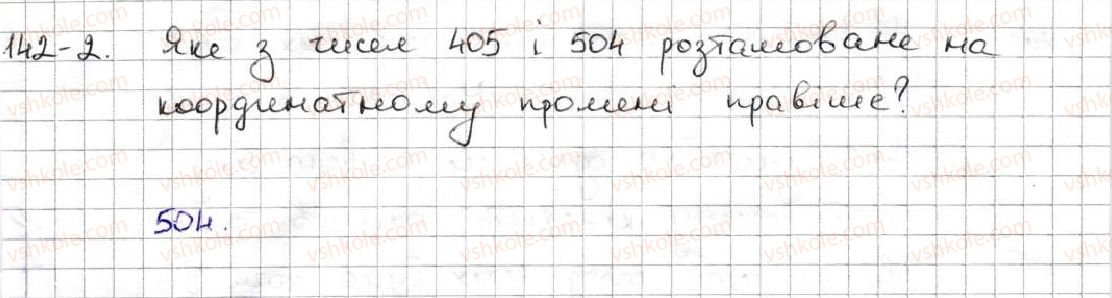 142-2. Яке з чисел 405 і 504 розташоване на
координатному промені правіше?
504.